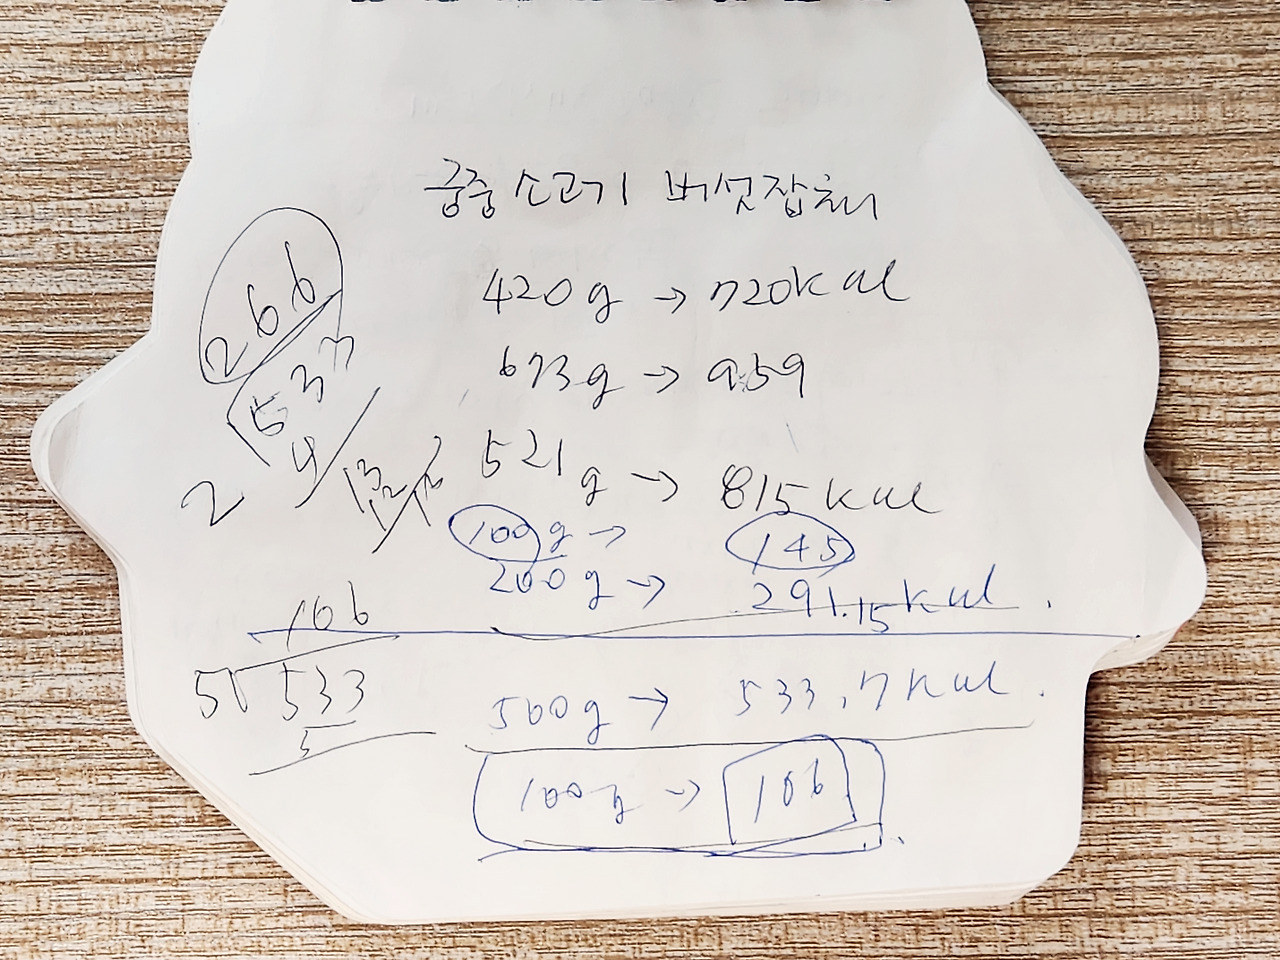 궁중 소고기 버섯잡채
420g → 720kcal
673g → 959
521g → 815kcal
100g → 145
200g → 291.15kcal.
500g → 533.7kcal.
100g → 106
266
2 537
4
13
12
106
5 533
5